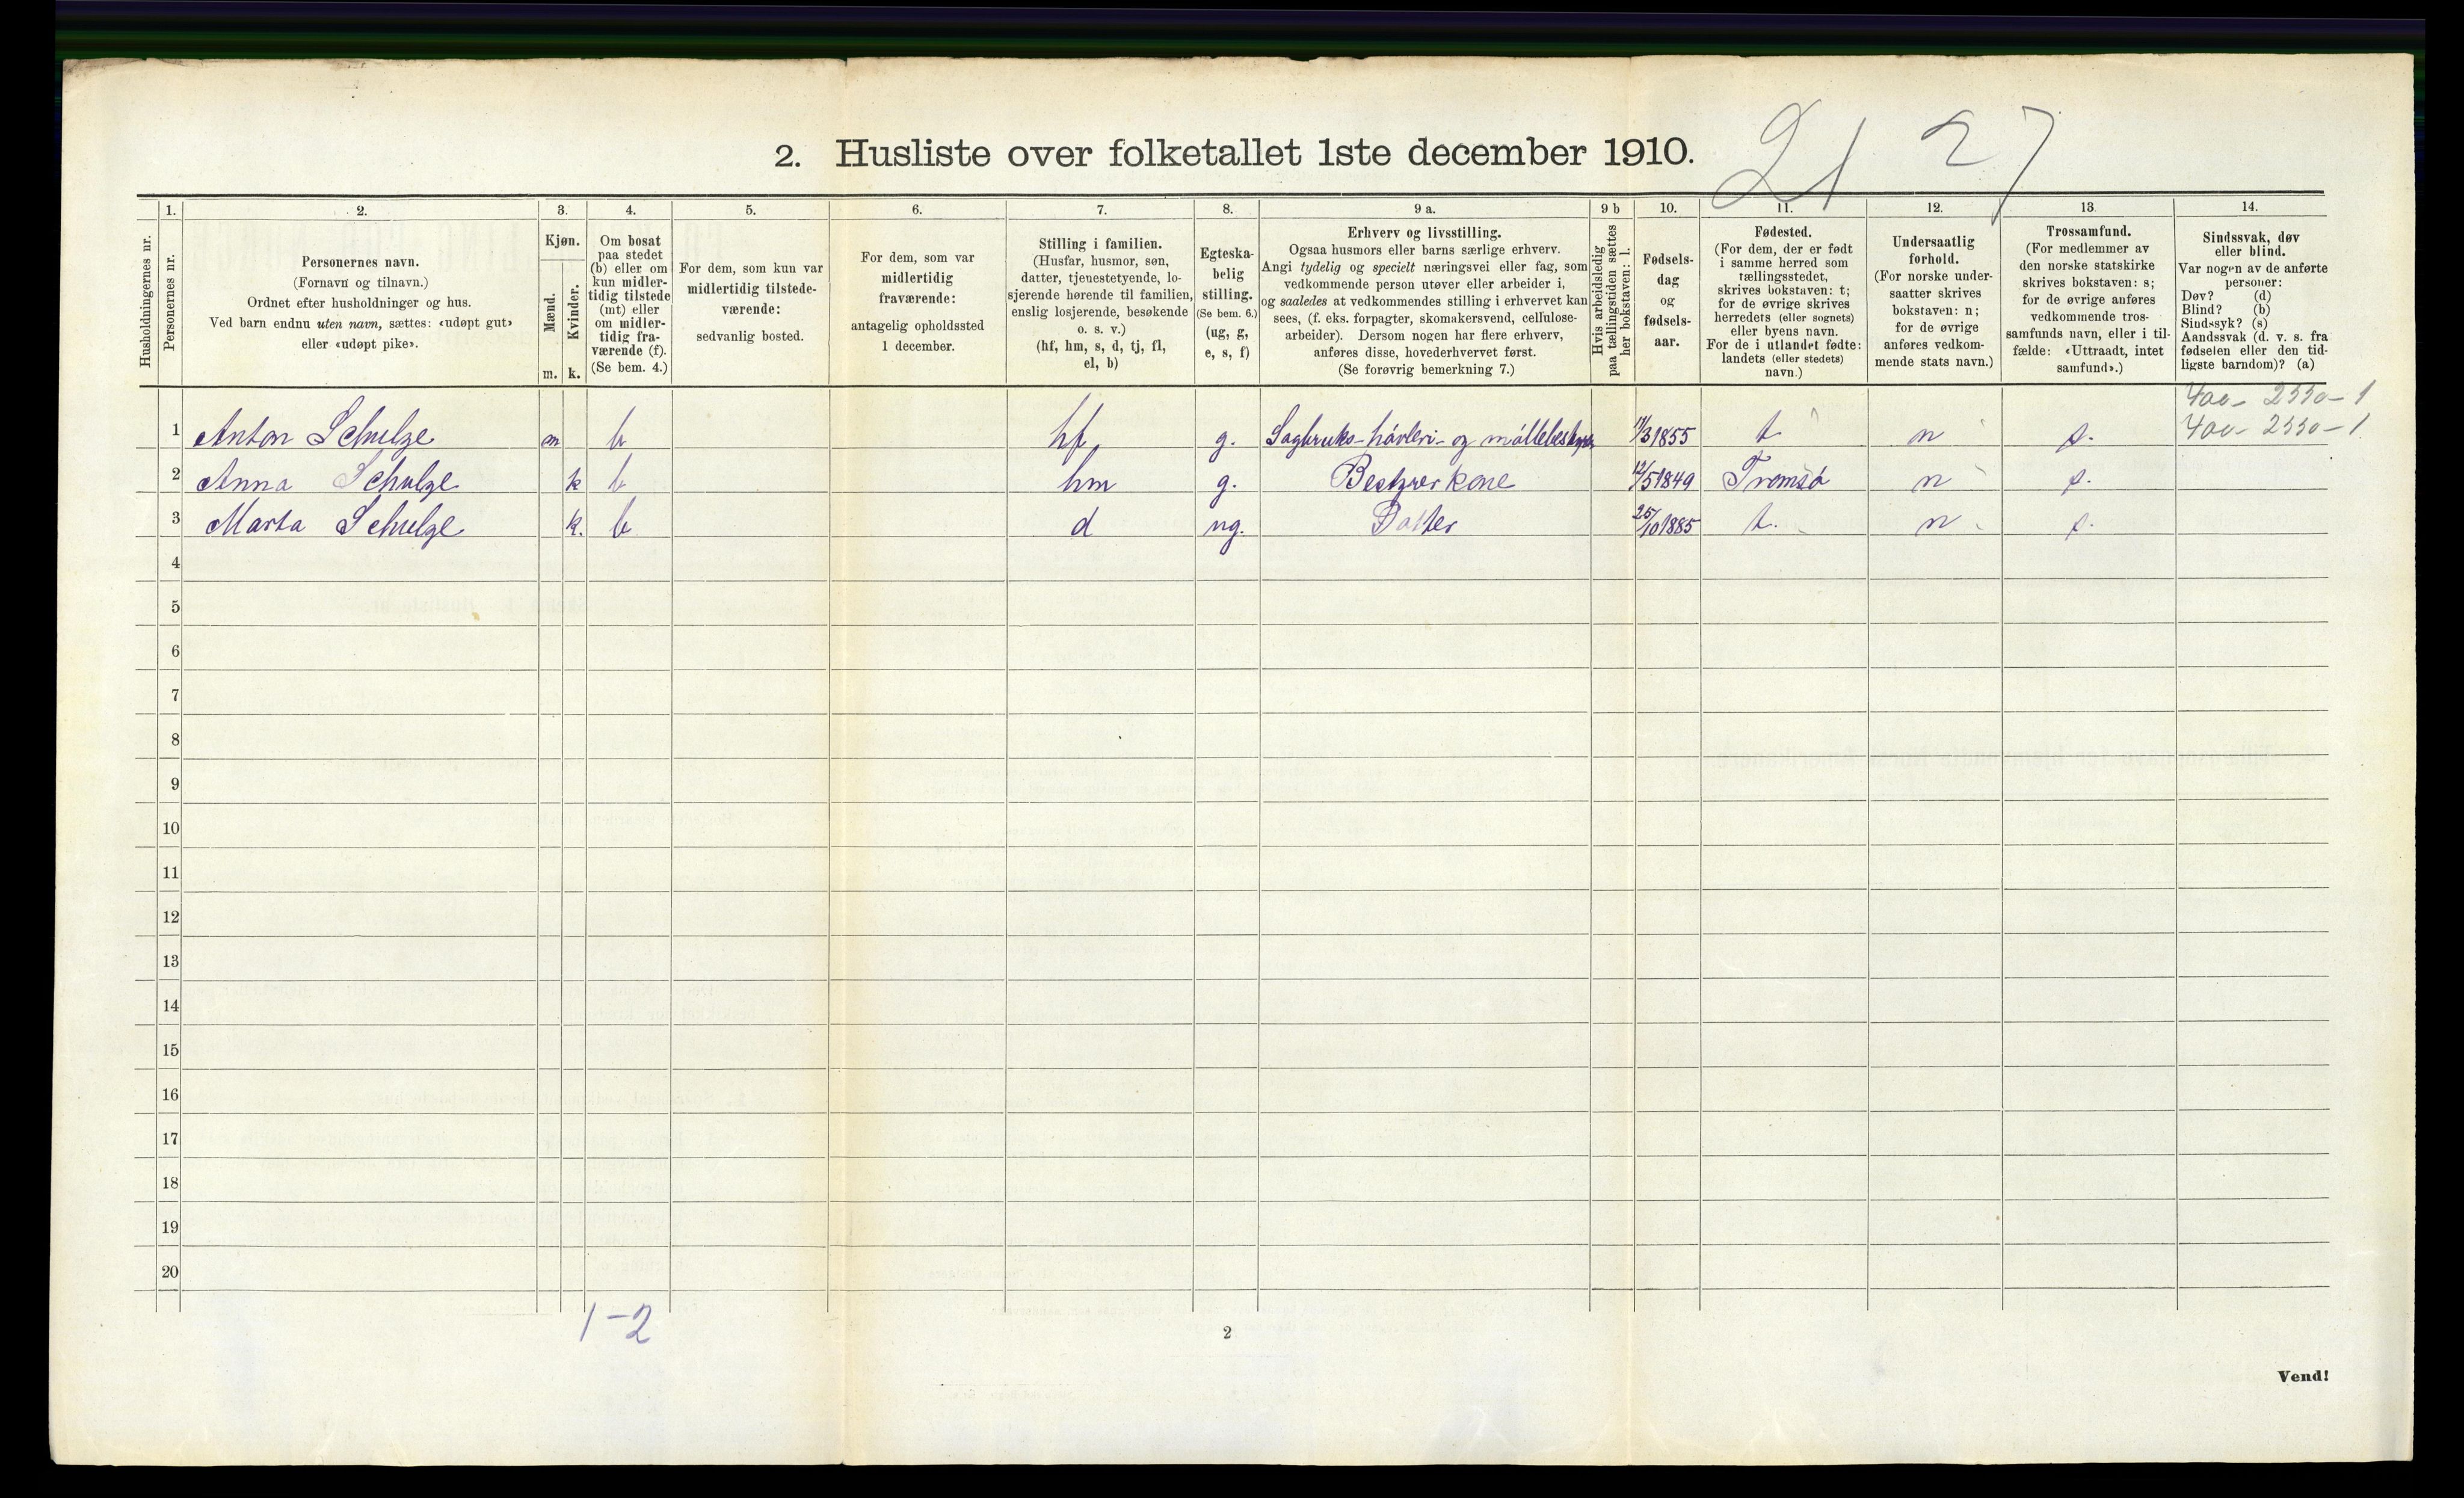 21 27
2. Husliste over folketallet 1ste december 1910.
1. 2. 3. 4. 5. 6. 7. 8. 9 a. 9 b 10. 11. 12. 13. 14.
Husholdningernes nr.
Personernes nr.
Personernes navn.
(Fornavn og tilnavn.)
Ordnet efter husholdninger og hus.
Ved barn endnu uten navn, sættes: «udøpt gut»
eller «udøpt pike».
Kjøn.
Mænd.
Kvinder.
m. k.
Om bosat
paa stedet
(b) eller om
kun midler-
tidig tilstede
(mt) eller
om midler-
tidig fra-
værende (f).
(Se bem. 4.)
For dem, som kun var
midlertidig tilstede-
værende:
sedvanlig bosted.
For dem, som var
midlertidig
fraværende:
antagelig opholdssted
1 december.
Stilling i familien.
(Husfar, husmor, søn,
datter, tjenestetyende, lo-
sjerende hørende til familien,
enslig losjerende, besøkende
o. s. v.)
(hf, hm, s, d, tj, fl,
el, b)
Egteska-
belig
stilling.
(Se bem. 6.)
(ug, g,
e, s, f)
Erhverv og livsstilling.
Ogsaa husmors eller barns særlige erhverv.
Angi tydelig og specielt næringsvei eller fag, som
vedkommende person utøver eller arbeider i,
og saaledes at vedkommendes stilling i erhvervet kan
sees, (f. eks. forpagter, skomakersvend, cellulose-
arbeider). Dersom nogen har flere erhverv,
anføres disse, hovederhvervet først.
(Se forøvrig bemerkning 7.)
Hvis arbeidsledig
paa tællingstiden sættes
her bokstaven: l.
Fødsels-
dag
og
fødsels-
aar.
Fødested.
(For dem, der er født
i samme herred som
tællingsstedet,
skrives bokstaven: t;
for de øvrige skrives
herredets (eller sognets)
eller byens navn.
For de i utlandet fødte:
landets (eller stedets)
navn.)
Undersaatlig
forhold.
(For norske under-
saatter skrives
bokstaven: n;
for de øvrige
anføres vedkom-
mende stats navn.)
Trossamfund.
(For medlemmer av
den norske statskirke
skrives bokstaven: s;
for de øvrige anføres
vedkommende tros-
samfunds navn, eller i til-
fælde: «Uttraadt, intet
samfund».)
Sindssvak, døv
eller blind.
Var nogen av de anførte
personer:
Døv? (d)
Blind? (b)
Sindssyk? (s)
Aandssvak (d. v. s. fra
fødselen eller den tid-
ligste barndom)? (a)
400 - 2550 - 1
1 Anton Schulze m b hf g. Sagbruks- høvleri- og møllebestyrer 11/3 1855 t n s. 400 - 2550 - 1
2 Anna Schulze k b hm g. Bestyrerkone 12/5 1849 Tromsø n s.
3 Marta Schulze k. b d ug. Datter 25/10 1885 t. n s.
4
5
6
7
8
9
10
11
12
13
14
15
16
17
18
19
20
1-2
2
Vend!